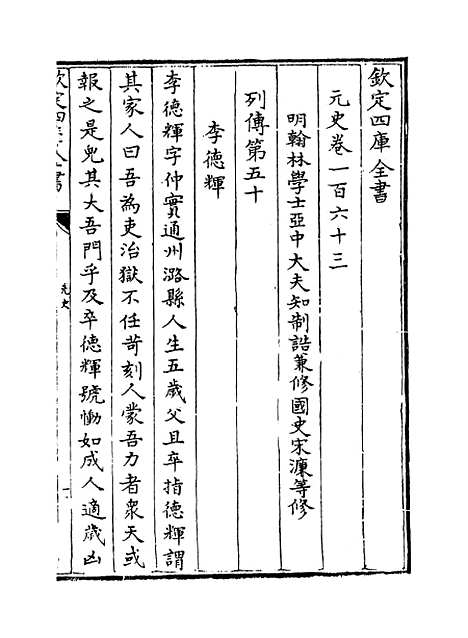 欽定四庫全書
元史卷一百六十三
明翰林學士亞中大夫知制誥兼修國史宋濂等修
列傳第五十
李德輝
李德輝字仲實通州潞縣人生五歲父且卒指德輝謂
其家人曰吾為吏治獄不任苛刻人蒙吾力者衆天或
報之是兒其大吾門乎及卒德輝號慟如成人適歲凶
欽定四庫全書
元史